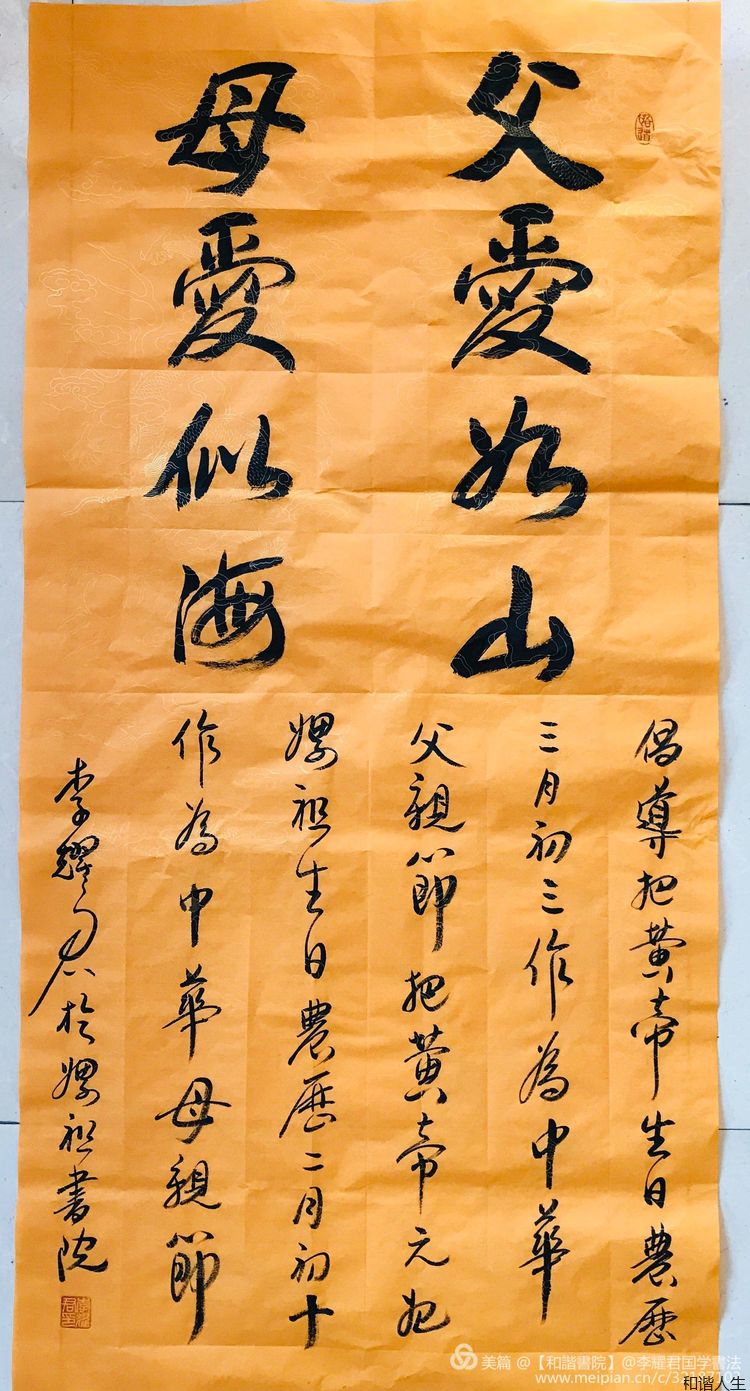 父愛如山
母愛似海
倡導把黄帝生日農歷
三月初三作為中華
父親節把黄帝元妃
嫘祖生日農歷二月初十
作為中華母親節
李耀君於嫘祖書院
美篇 @【和諧書院】@李耀君国学書法
www.meipian.cn/c/
和谐人生